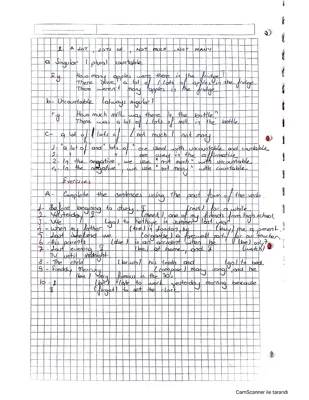 A LOT, LOTS OF, NOT MUCH, NOT MANY
a. Singular / plural countable
E.g. How many apples were there in the fridge?
There were a lot of / lots of apples in the fridge.
There weren't many apples in the fridge.
b. Uncountable (always singular)
E.g. How much milk was there in the bottle?
There was a lot of / lots of milk in the bottle.
C- a lot of / lots of / not much / not many
1. "a lot of" and "lots of" are used with uncountable and countable.
2. in the affirmative.
2. In the negative, we use "not much" with uncountable.
In the negative, we use "not many" with countable.
Exercises
A- Complete the sentences using the past form of the verbs
1- Before beginning to study, I (rest) for a while.
2- Yesterday, I (meet) one of my friends from high school.
3- We (go) to in summer last year.
4- when my father (be) in London, he (buy) me a present.
5- Last weekend we (organize) a farewell party for our teacher.
6- His parents (die) in an accident when he (be) only
7- Last evening, I (be) at home, and I (watch)
TV until midnight.
8- The child (brush) his teeth and (go) to bed.
9- Freddy Mercury (compose) many song and he
(be) very famous in the 80's
10- I (be) late to work yesterday morning because
I (forget) to set the clock.
CamScanner ile tarandı